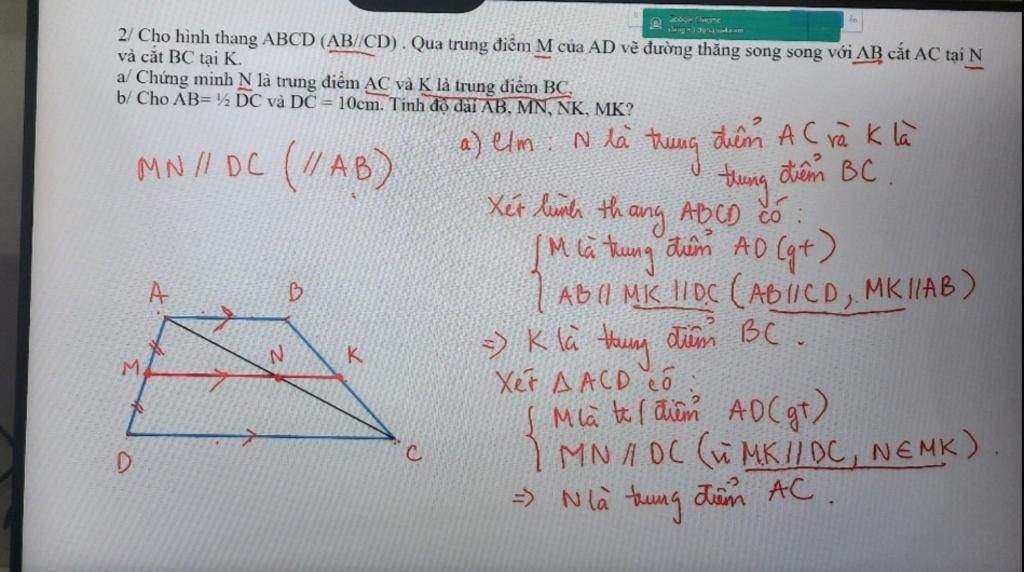 Google Chrome
2/ Cho hình thang ABCD (AB//CD) . Qua trung điểm M của AD vẽ đường thẳng song song với AB cắt AC tại N
và cắt BC tại K.
a/ Chứng minh N là trung điểm AC và K là trung điểm BC.
b/ Cho AB= ½ DC và DC = 10cm. Tính độ dài AB, MN, NK, MK?
MN // DC ( // AB)
a) C/m : N là trung điểm AC và K là
trung điểm BC .
Xét hình thang ABCD có :
M là trung điểm AD (gt)
AB // MK // DC (AB//CD, MK//AB)
=> K là trung điểm BC .
Xét Δ ACD có :
M là tr/điểm AD (gt)
MN // DC (vì MK // DC, N ∈ MK) .
=> N là trung điểm AC .
A B
M N K
D C